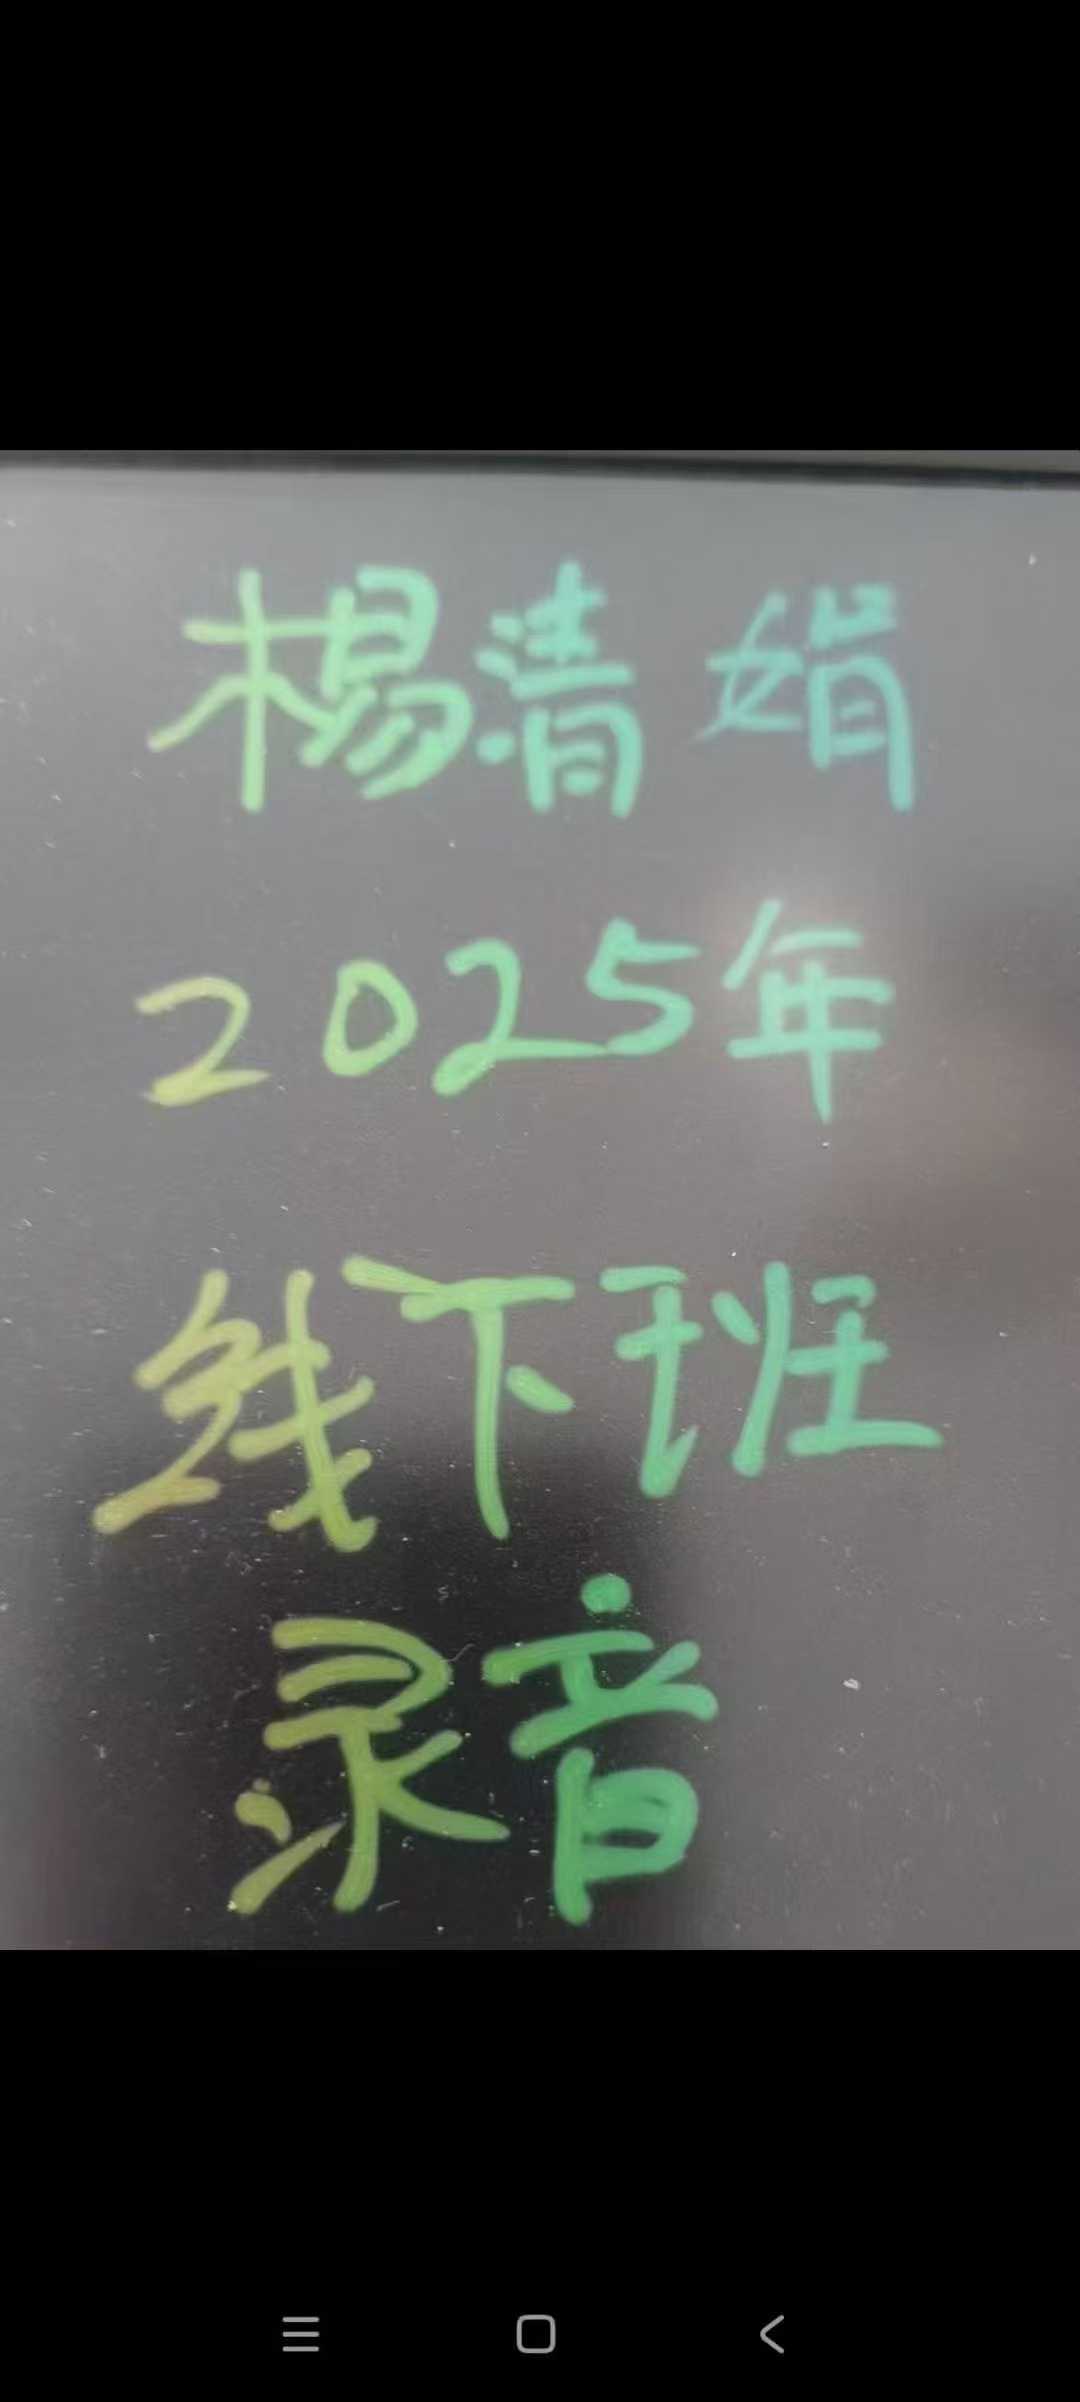 楊清娟
2025年
线下班
录音